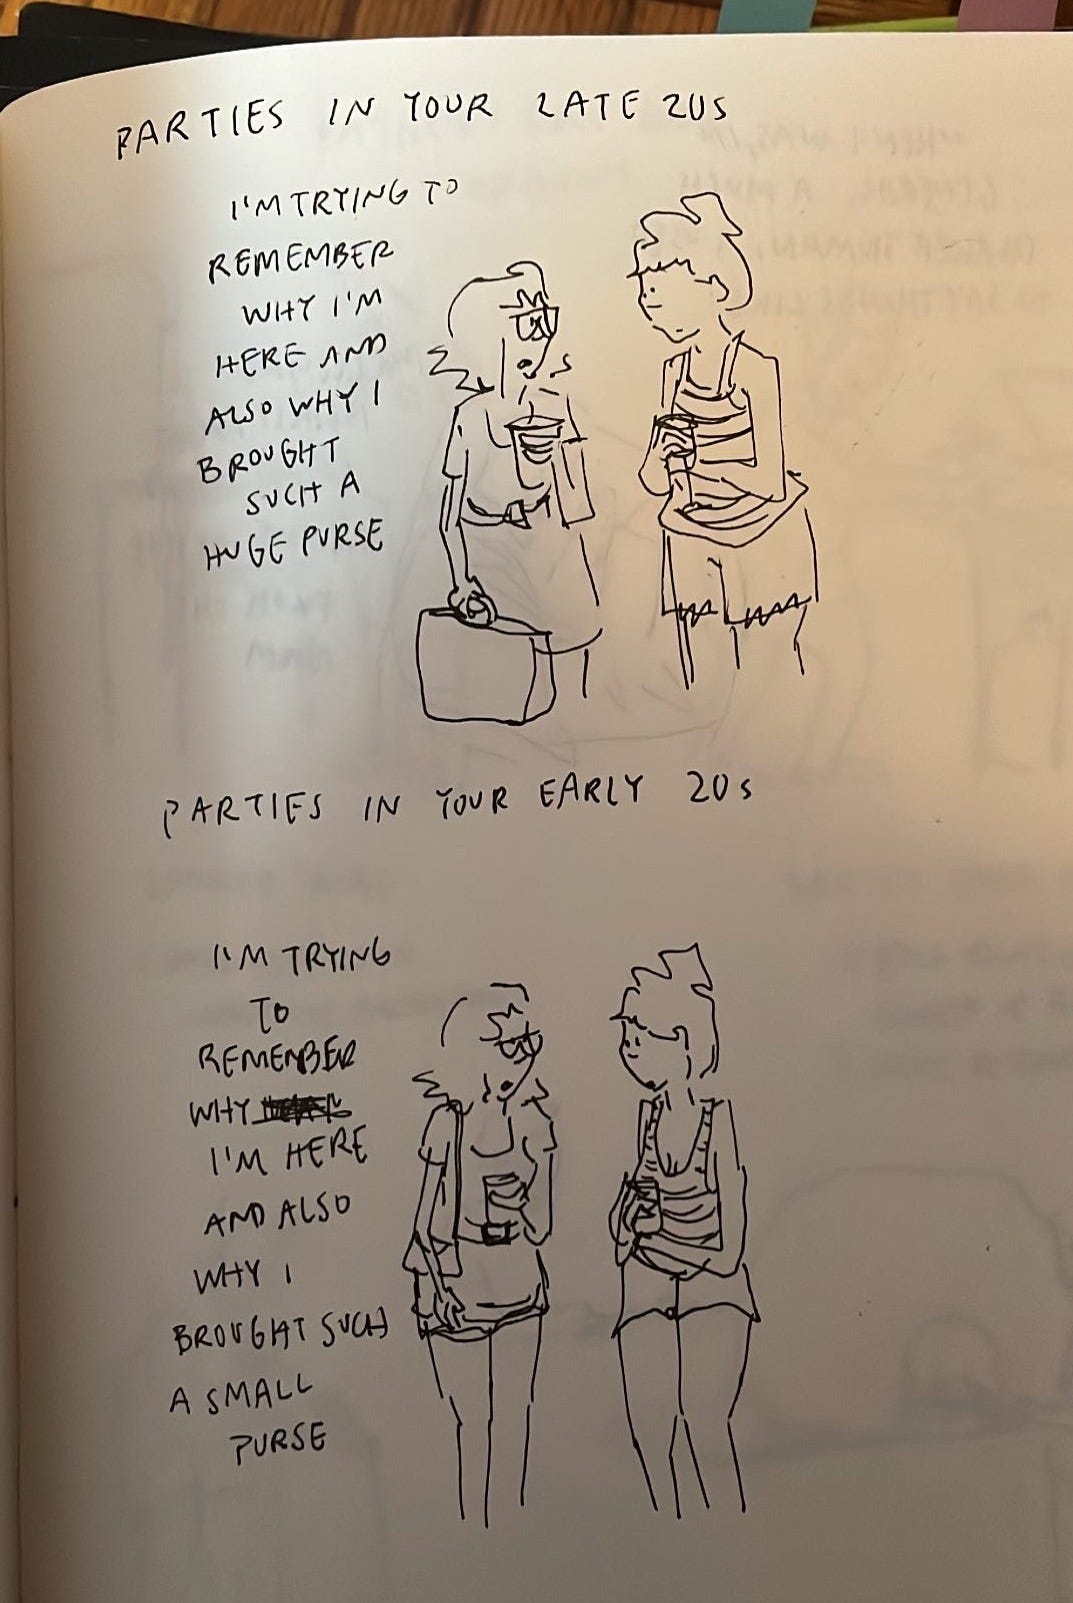 PARTIES IN YOUR LATE 20S
I'M TRYING TO
REMEMBER
WHY I'M
HERE AND
ALSO WHY I
BROUGHT
SUCH A
HUGE PURSE
PARTIES IN YOUR EARLY 20s
I'M TRYING
TO
REMEMBER
WHY
I'M HERE
AND ALSO
WHY I
BROUGHT SUCH
A SMALL
PURSE